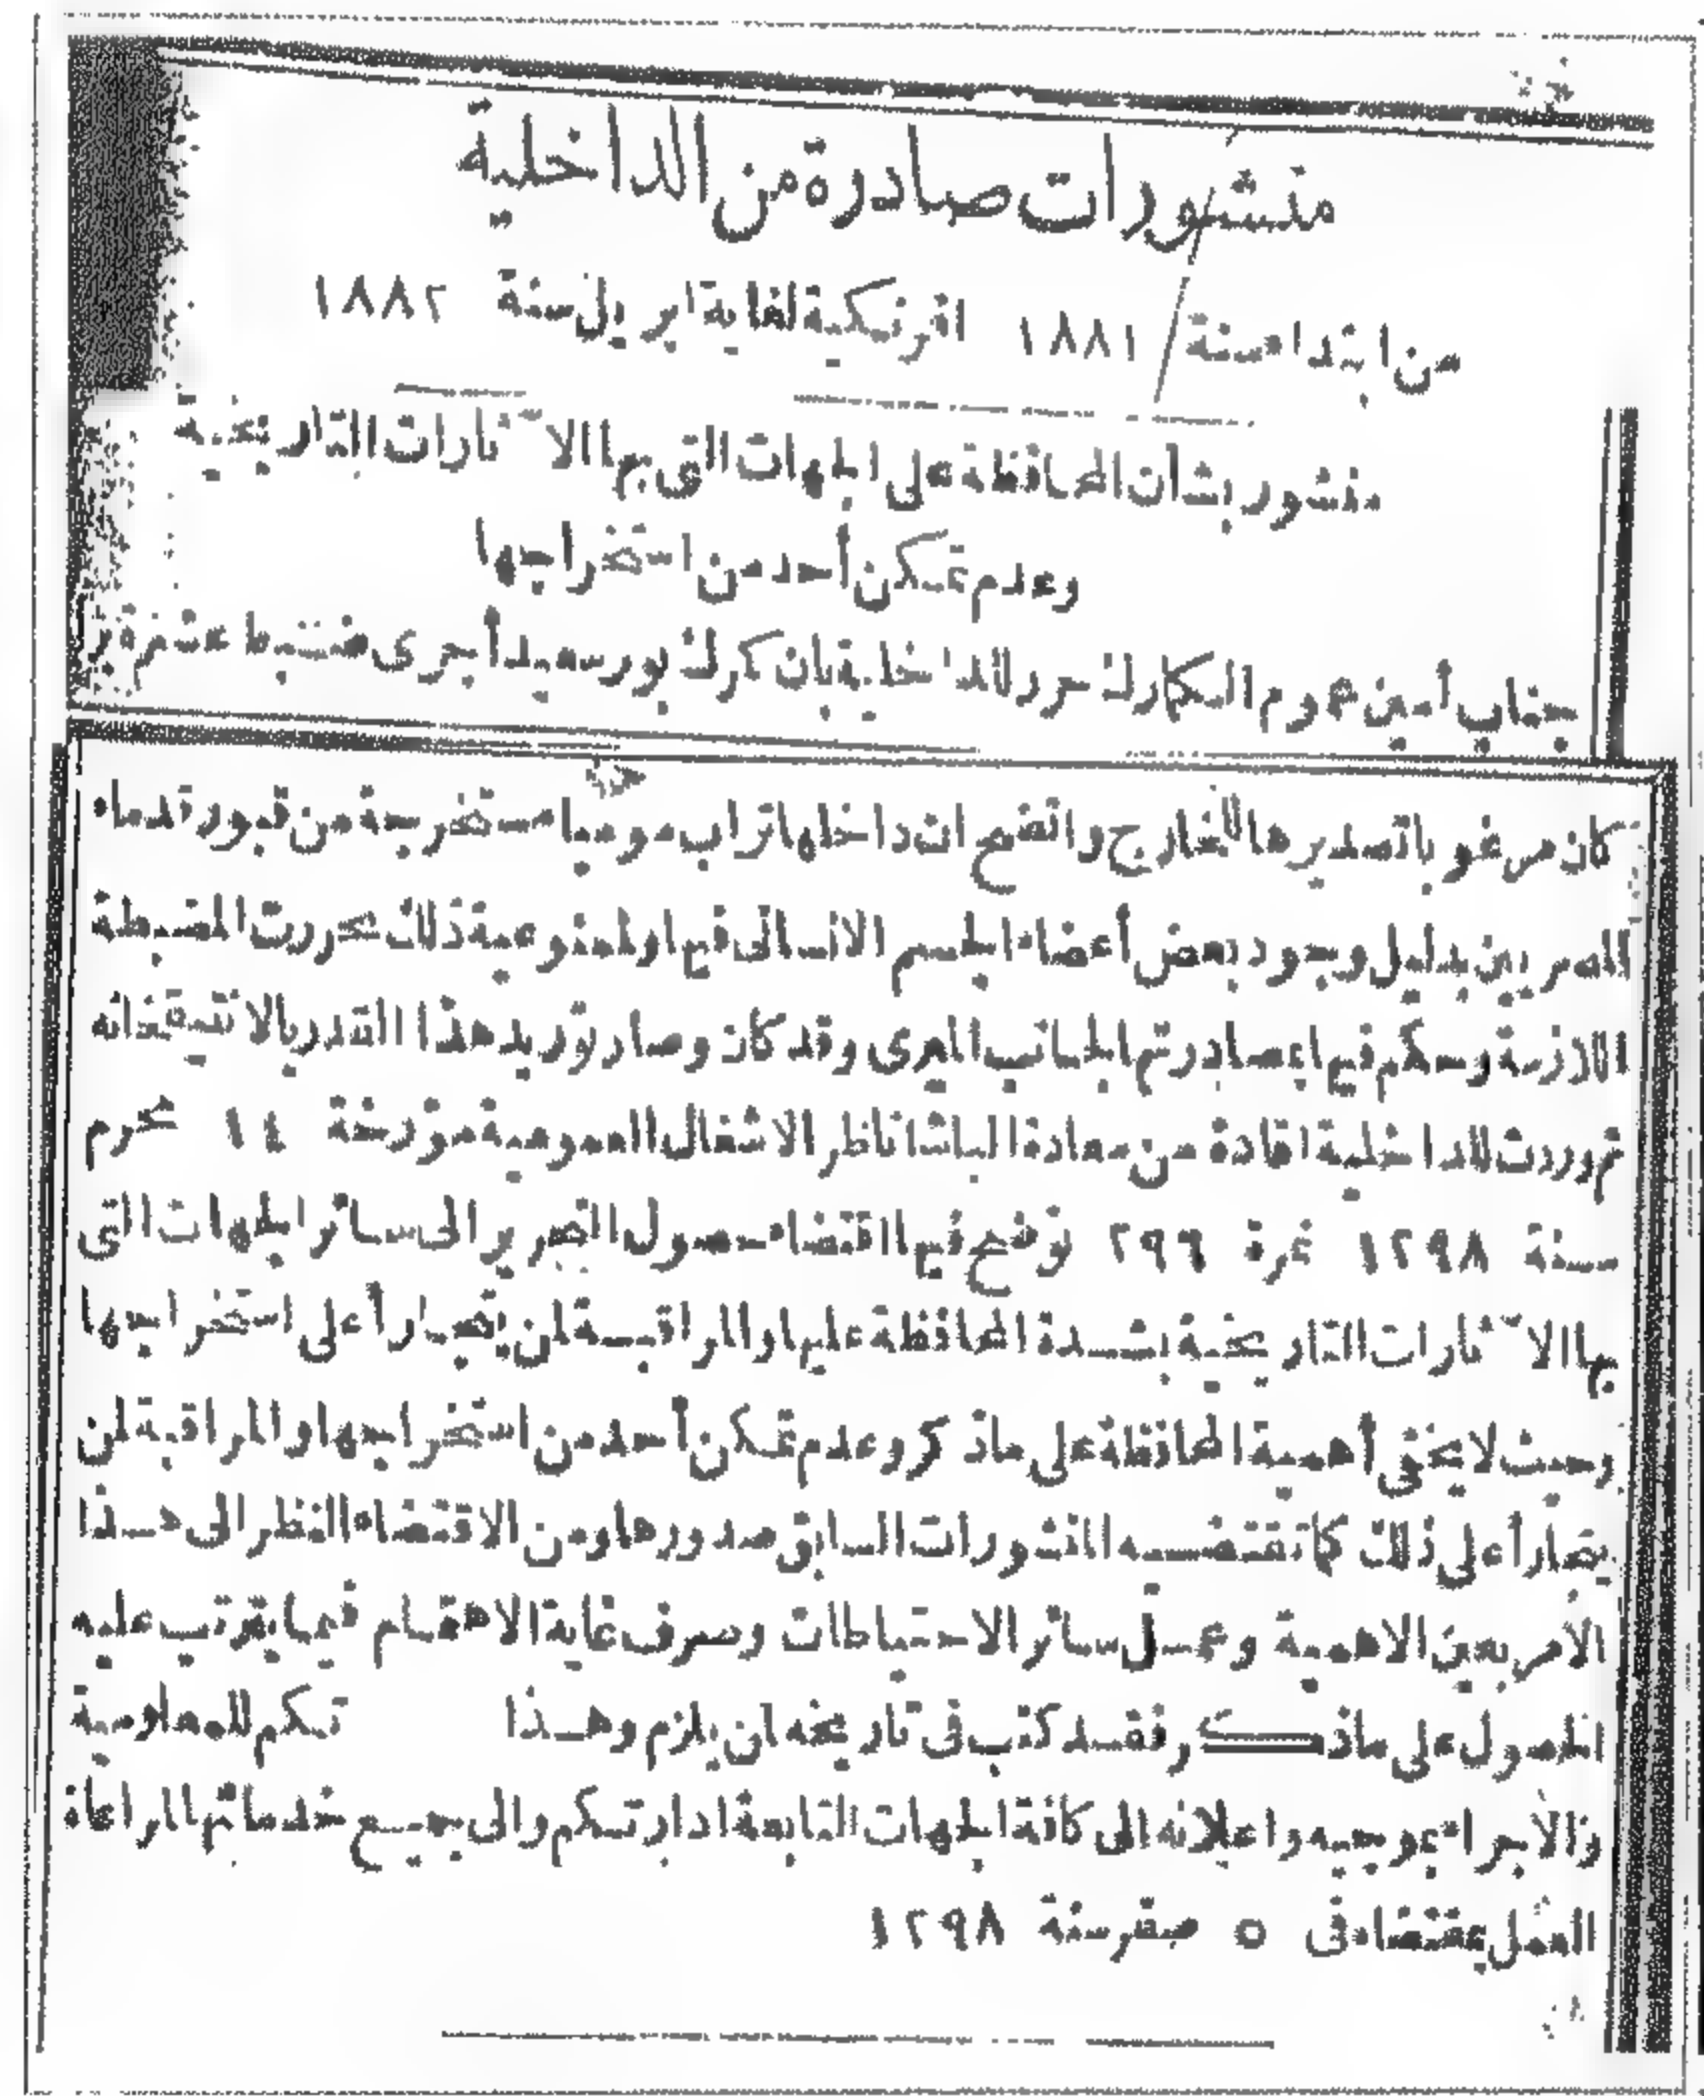 منشورات صادرة من الداخلية
من ابتداء سنة ١٨٨١ افرنكية لغاية ابريل سنة ١٨٨٢
منشور بشأن المحافظة على الجهات التى بها الآثارات التاريخية
وعدم تمكن أحد من استخراجها
جناب أمين عموم الكمارك حرر للداخلية بان كمرك بورسعيد أجرى ضبط عشرة
كان مرغوبا تصديرها للخارج واتضح ان داخلها تراب موميا مستخرجة من قبور قدماء
المصريين بدليل وجود بعض أعضاء الجسم الانسانى فيها ولممنوعية ذلك تحررت المضبطة
اللازمة وحكم فيها بمصادرتها لجانب الميرى وقد كان وصار توريد هذا القدر بالانتيقخانه
ثم وردت للداخلية افادة من سعادة الباشا ناظر الاشغال العمومية مؤرخة ١٤ محرم
سنة ١٢٩٨ نمرة ٢٩٦ توضح فيها اقتضاء حصول التحرير الى سائر الجهات التى
بها الآثارات التاريخية بشدة المحافظة عليها والمراقبة لمن يتجارأ على استخراجها
وحيث لا يخفى أهمية المحافظة على ماذكر وعدم تمكن أحد من استخراجها والمراقبة لمن
يتجارأ على ذلك كما تقتضيه المنشورات السابق صدورها ومن الاقتضاء النظر الى هذا
الأمر بعين الاهمية وعمل سائر الاحتياطات وصرف غاية الاهتمام فيما يترتب عليه
الحصول على ماذكر فقد كتب فى تاريخه لمن يلزم وهذا لكم للمعلومية
والأجراء بموجبه واعلانه الى كافة الجهات التابعة ادارتكم والى جميع خدماتها لمراعاة
العمل بمقتضاه فى ٥ صفر سنة ١٢٩٨